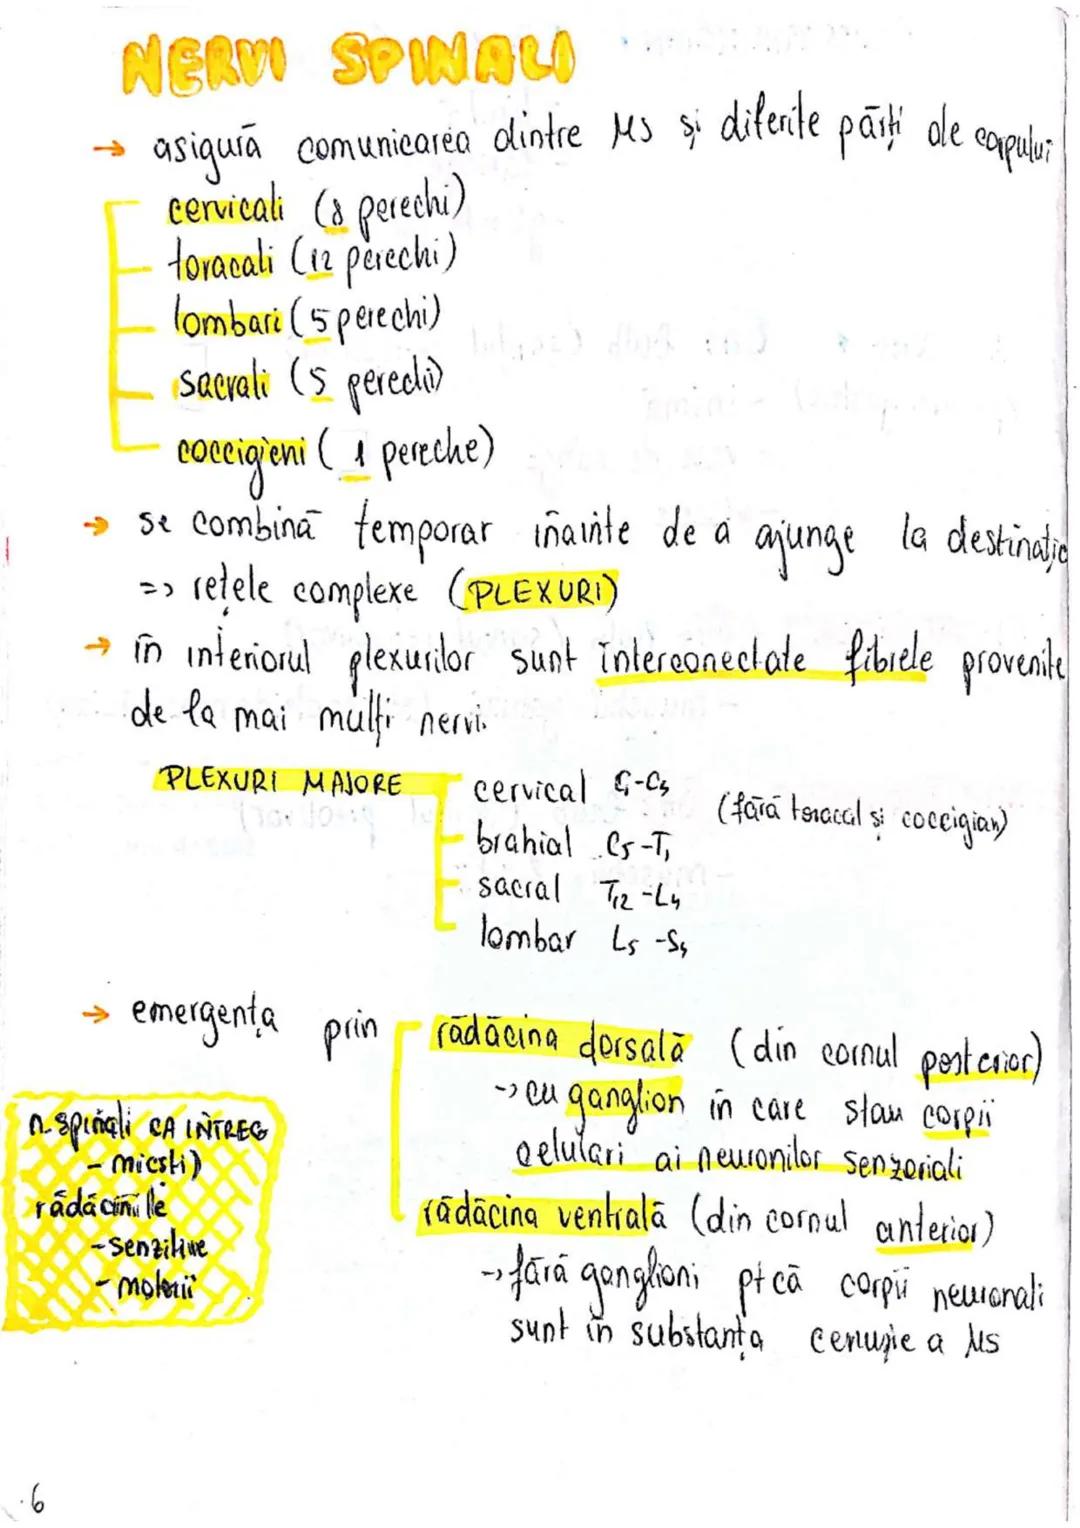 NERVI SPINALI
→ asigură comunicarea dintre MS și diferite părți ale corpului
cervicali (8 perechi)
toracali (12 perechi)
lombari (5 perechi)
sacrali (5 perechi)
coccigieni (1 pereche)
→ se combină temporar înainte de a ajunge la destinație
=> rețele complexe (PLEXURI)
→ în interiorul plexurilor sunt interconectate fibrele provenite
de la mai mulți nervi.
PLEXURI MAJORE
cervical C1-C4
(fără toracal și coccigian)
brahial C5-T1
sacral T12-L4
lombar L5-S4
→ emergența prin
rădăcina dorsală (din cornul posterior)
-> cu ganglion în care stau corpii
celulari ai neuronilor senzoriali
rădăcina ventrală (din cornul anterior)
-> fără ganglioni pt că corpii neuronali
sunt în substanța cenușie a MS
n. spinali CA ÎNTREG
- micști)
rădăcinile
- senzitive
- motorii
.6